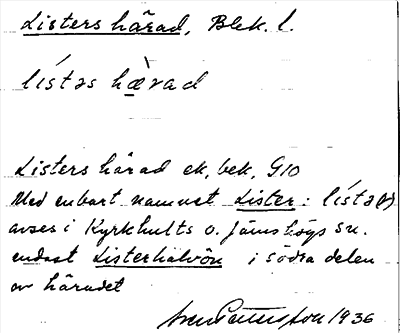 Listers härad, Blek. l.
lístəs hæ̀rad
Listers härad ek, bek, G10
Med enbart namnet Lister: lístə(r)
avses i Kyrkhults o. Jämshögs sn.
endast Listerhalvön i södra delen
av häradet
Sven Pettersson 1936